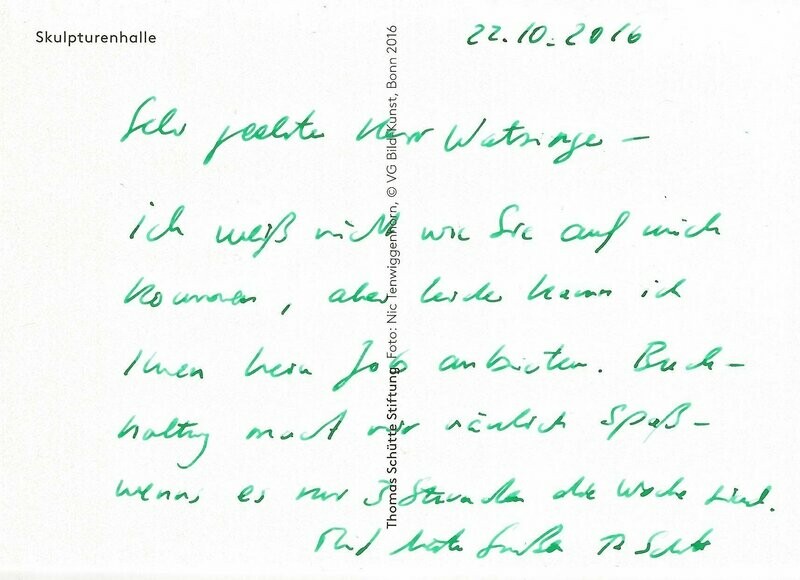 Skulpturenhalle
22.10.2016
Sehr geehrter Herr Watzinger –
ich weiß nicht wie Sie auf mich
kommen, aber leider kann ich
Ihnen kein Job anbieten. Buch-
haltung macht mir nämlich Spaß –
wenns es nur 3 Stunden die Woche sind.
Mit besten Grüßen Th Schütte
Thomas Schütte Stiftung, Foto: Nic Tenwiggenhorn, © VG Bild-Kunst, Bonn 2016